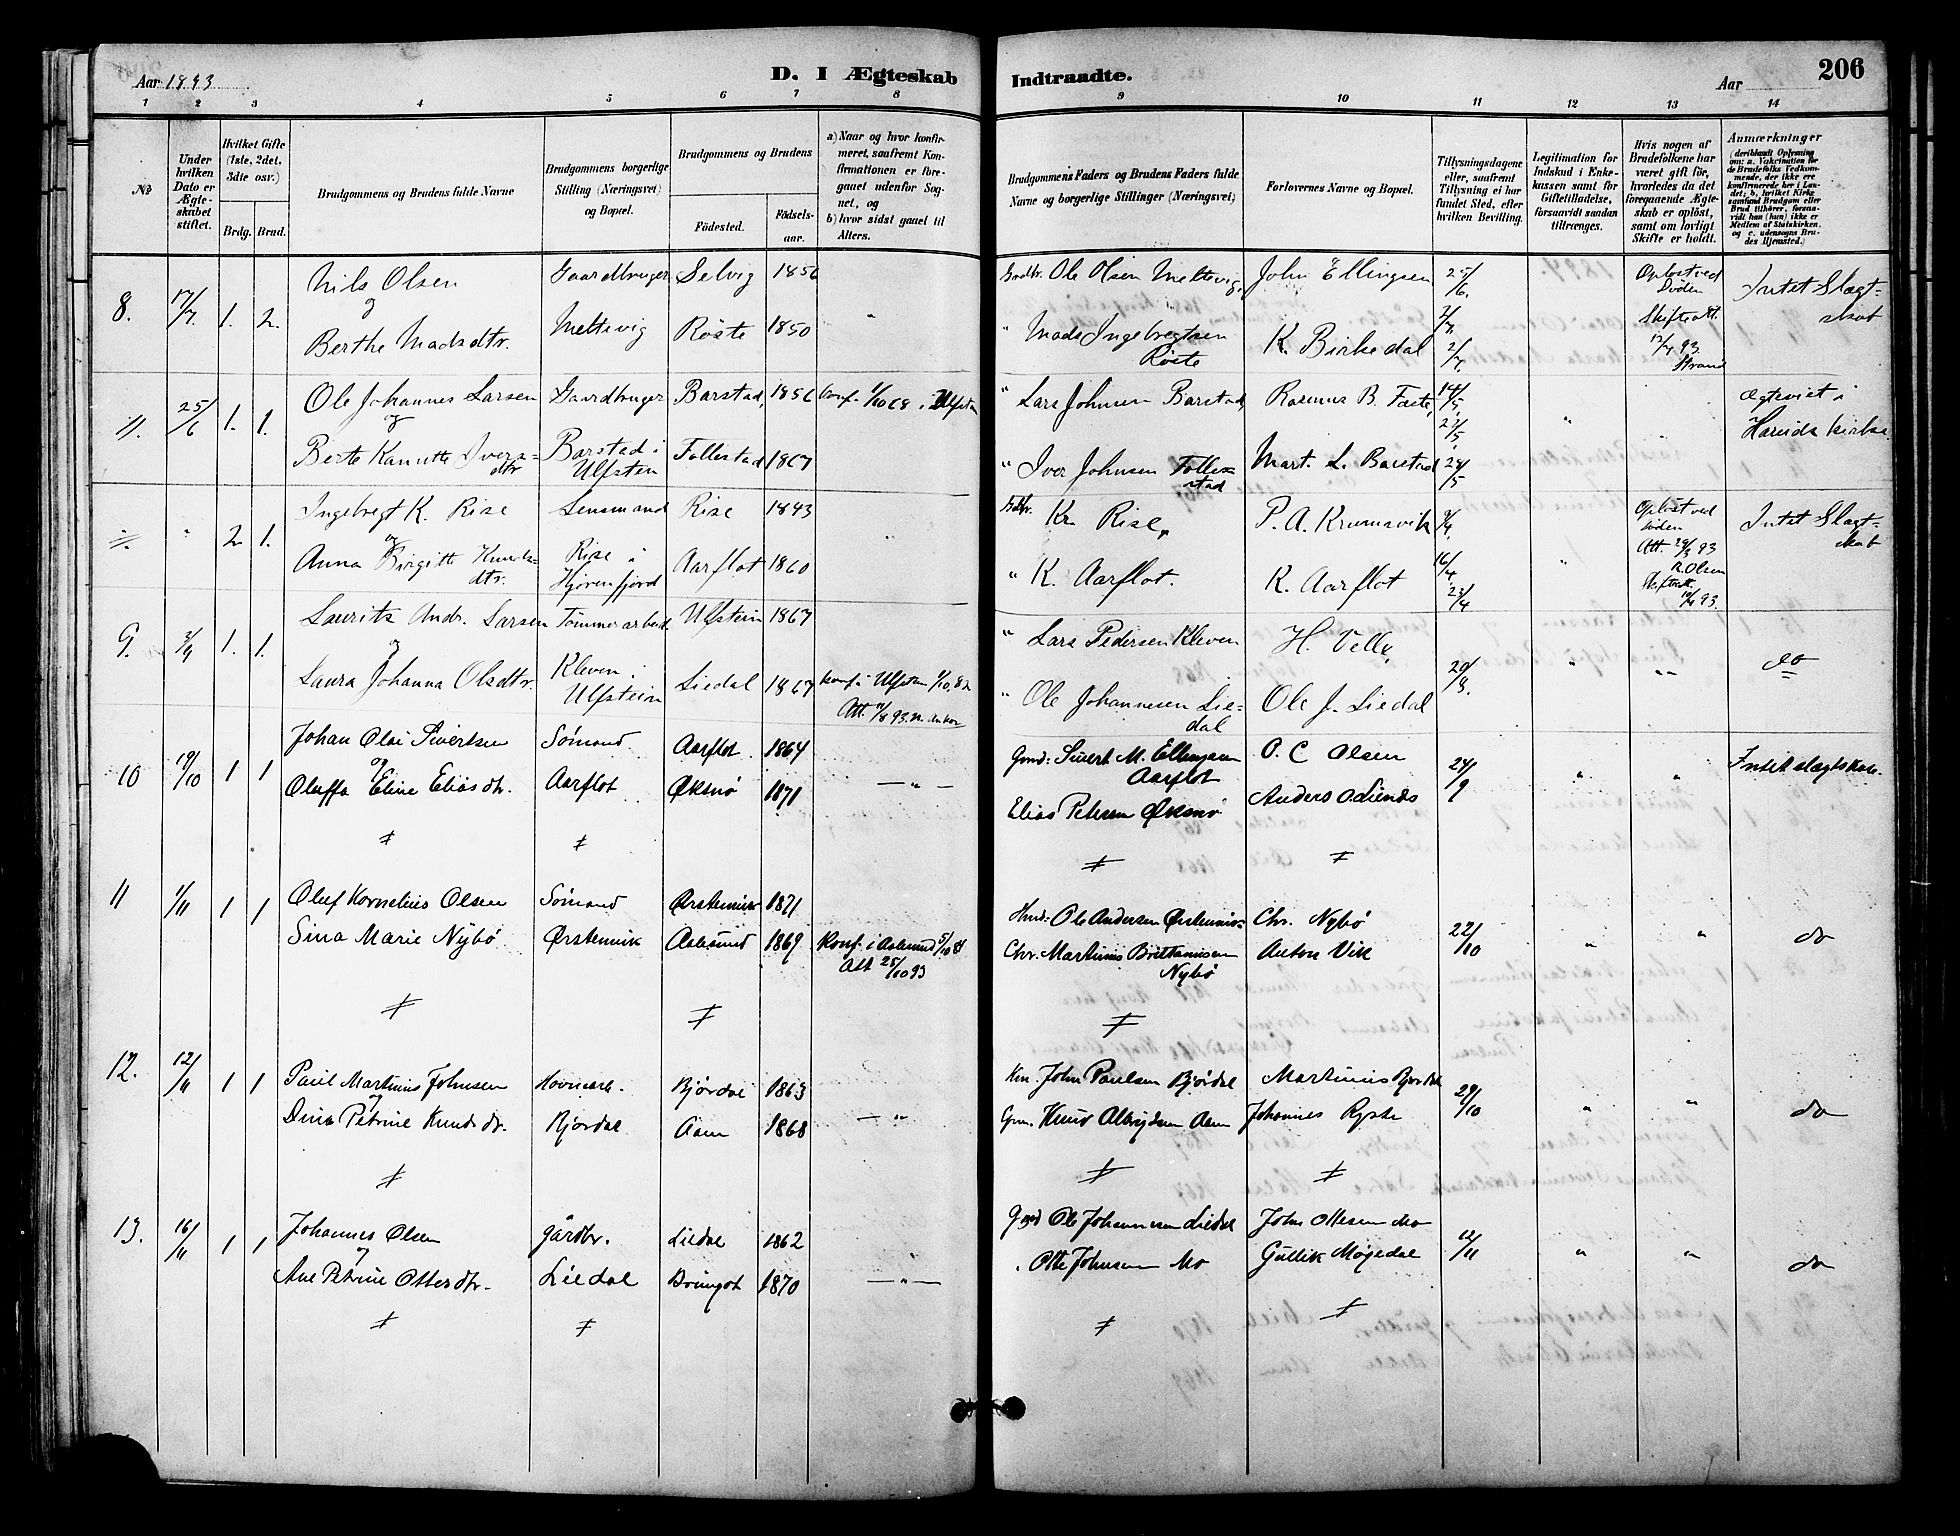 Aar 1893
D. I Ægteskab
Indtraadte.
Aar
206
1 2 3 4 5 6 7 8 9 10 11 12 13 14
No
Under hvilken Dato er Ægteskabet stiftet.
Hvilket Gifte (1ste, 2det, 3die osv.)
Brdg. Brud.
Brudgommens og Brudens fulde Navne
Brudgommens borgerlige Stilling (Næringsvei) og Bopæl.
Brudgommens og Brudens
Fødested.
Fødselsaar.
a) Naar og hvor konfirmeret, saafremt Konfirmationen er foregaaet udenfor Sognet, og
b) hvor sidst gaaet til Alters.
Brudgommens Faders og Brudens Faders fulde Navne og borgerlige Stillinger (Næringsvei)
Forlovernes Navne og Bopæl.
Tillysningsdagene eller, saafremt Tillysning ei har fundet Sted, efter hvilken Bevilling.
Legitimation for Indskud i Enkekassen samt for Giftetilladelse, forsaavidt saadan tiltrænges.
Hvis nogen af Brudefolkene har været gift før, hvorledes da det foregaaende Ægteskab er opløst, samt om lovligt Skifte er holdt.
Anmærkninger
(deriblandt Oplysning om: a. Vakcination for de Brudefolks Vedkommende, der ikke ere konfirmerede her i Landet; b. hvilket Kirkesamfund Brudgom eller Brud tilhører, forsaavidt han (hun) ikke er Medlem af Statskirken, og c. udensogns Brudes Hjemsted.)
8. 17/7 1. 2. Nils Olsen Gaardbruger Selvig 1856 Gaardbr. Ole Olsen Meltevig, John Ellingsen 25/6. Opløst ved Døden Intet Slagt-
skab
og
Berthe Madsdtr. Meltevig Röste 1850 " Mads Ingebregtsen K. Birkedal 2/7. 2/7. Skifteatt. 12/7 93.
Röste Strand
11. 25/6 1. 1. Ole Johannes Larsen Gaardbruger Barstad, 1856 Conf. 1/10 68 i Ulfsten " Lars Johnsen Barstad, Rasmus B. Faste, 14/5, 22/5. " Ægteviet i
og Hareids kirke.
Berte Kanutte Ivers- Barstad i Follestad 1867 " Iver Johnsen Folle- Mart. L. Barstad 28/5
dtr Ulfsten stad
" 2 1. Ingebregt K. Rise Lensmand Rise 1843 " Gdbr. Kr. Rise, P. A. Krumsvik 9/4. Opløst ved Intet Slagt-
og døden skab
Anna Birgitte Knuds- Rise i Aarflot 1860 " K. Aarflot. K. Aarflot 16/4. 23/4 " Att. 29/3 93
dtr. Hjörenfjord R. Olsen
Skifteatt. 10/4 93.
9. 3/9 1. 1. Laurits Andr. Larsen Tömmerarbeid. Ulfstein 1867 " Lars Pedersen Kleven H. Velle,
og
Laura Johanna Olsdtr. Kleven i Liedal 1867 konf. i Ulfsten 1/10, 82 " Ole Johannesen Lie- Ole J. Liedal 20/8. " " do
Ulfstein Att. 11/8 93. dal
10 19/10 1 1 Johan Olai Sivertsen Sömand Aarflot 1864 Gmd: Sivert M. Ellingsen O. C Olsen 24/9 " " Intet slagtskab.
og Aarflot
Oluffa Eline Elias dtr. Aarflot Øksnö 1871 — " — Elias Petersen Øksnö Anders O. Liends
11 1/11 1 1 Oluf Kornelius Olsen Sömand Ørstenvik 1871 Hmd: Ole Andersen Ørstenvik Chr. Nybö
Sina Marie Nybö Ørstenvik Aalesund 1869 Konf. i Aalesund 5/10 84 Chr. Martinus Brittanusen Anton Vik 22/10 " " do
Att 25/10 93 Nybö
12. 12/11 1 1 Paul Martinus Johnsen Hovnearb. Bjørdal 1863 Km. John Paulsen Bjørdal Martinus Bjørdal
og
Dina Petrine Knuds dr. Bjørdal Aam 1868 — " Gm. Knud Aam Johannes Ryste 29/10 " " do
13. 16/11 1 1 Johannes Olsen Gårdbr. Liedal 1862 " Gmd Ole Johannesen Liedal John Ottesen Mo 12/11 " "
og
Ane Petrine Ottersdtr. Liedal 1870 — " — Otte Johnsen Mo Gullik Møgedal do